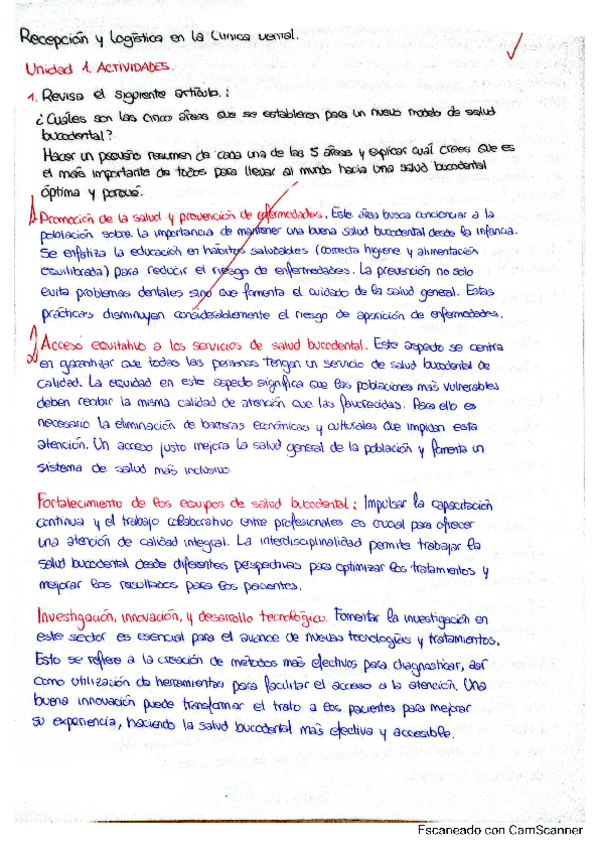 Recepción y Logística en la Clínica Dental.
Unidad 1. ACTIVIDADES.
1. Revisa el siguiente artículo.:
¿Cuáles son las cinco áreas que se establecen para un nuevo modelo de salud
bucodental?
Hacer un pequeño resumen de cada una de las 5 áreas y explicar cuál crees que es
el más importante de todos para llevar al mundo hacia una salud bucodental
óptima y porqué.
1 Promoción de la salud y prevención de enfermedades. Este área busca concienciar a la
población sobre la importancia de mantener una buena salud bucodental desde la infancia.
Se enfatiza la educación en hábitos saludables (correcta higiene y alimentación
equilibrada) para reducir el riesgo de enfermedades. La prevención no solo
evita problemas dentales sino que fomenta el cuidado de la salud general. Estas
prácticas disminuyen considerablemente el riesgo de aparición de enfermedades.
2 Acceso equitativo a los servicios de salud bucodental. Este aspecto se centra
en garantizar que todas las personas tengan un servicio de salud bucodental de
calidad. La equidad en este aspecto significa que las poblaciones más vulnerables
deben recibir la misma calidad de atención que las favorecidas. Para ello es
necesario la eliminación de barreras económicas y culturales que impidan esta
atención. Un acceso justo mejora la salud general de la población y fomenta un
sistema de salud más inclusivo.
Fortalecimiento de los equipos de salud bucodental: Impulsar la capacitación
continua y el trabajo colaborativo entre profesionales es crucial para ofrecer
una atención de calidad integral. La interdisciplinalidad permite trabajar la
salud bucodental desde diferentes perspectivas para optimizar los tratamientos y
mejorar los resultados para los pacientes.
Investigación, innovación, y desarrollo tecnológico. Fomentar la investigación en
este sector es esencial para el avance de nuevas tecnologías y tratamientos.
Esto se refiere a la creación de métodos más efectivos para diagnosticar, así
como utilización de herramientas para facilitar el acceso a la atención. Una
buena innovación puede transformar el trato a los pacientes para mejorar
su experiencia, haciendo la salud bucodental más efectiva y accesible.
Escaneado con CamScanner